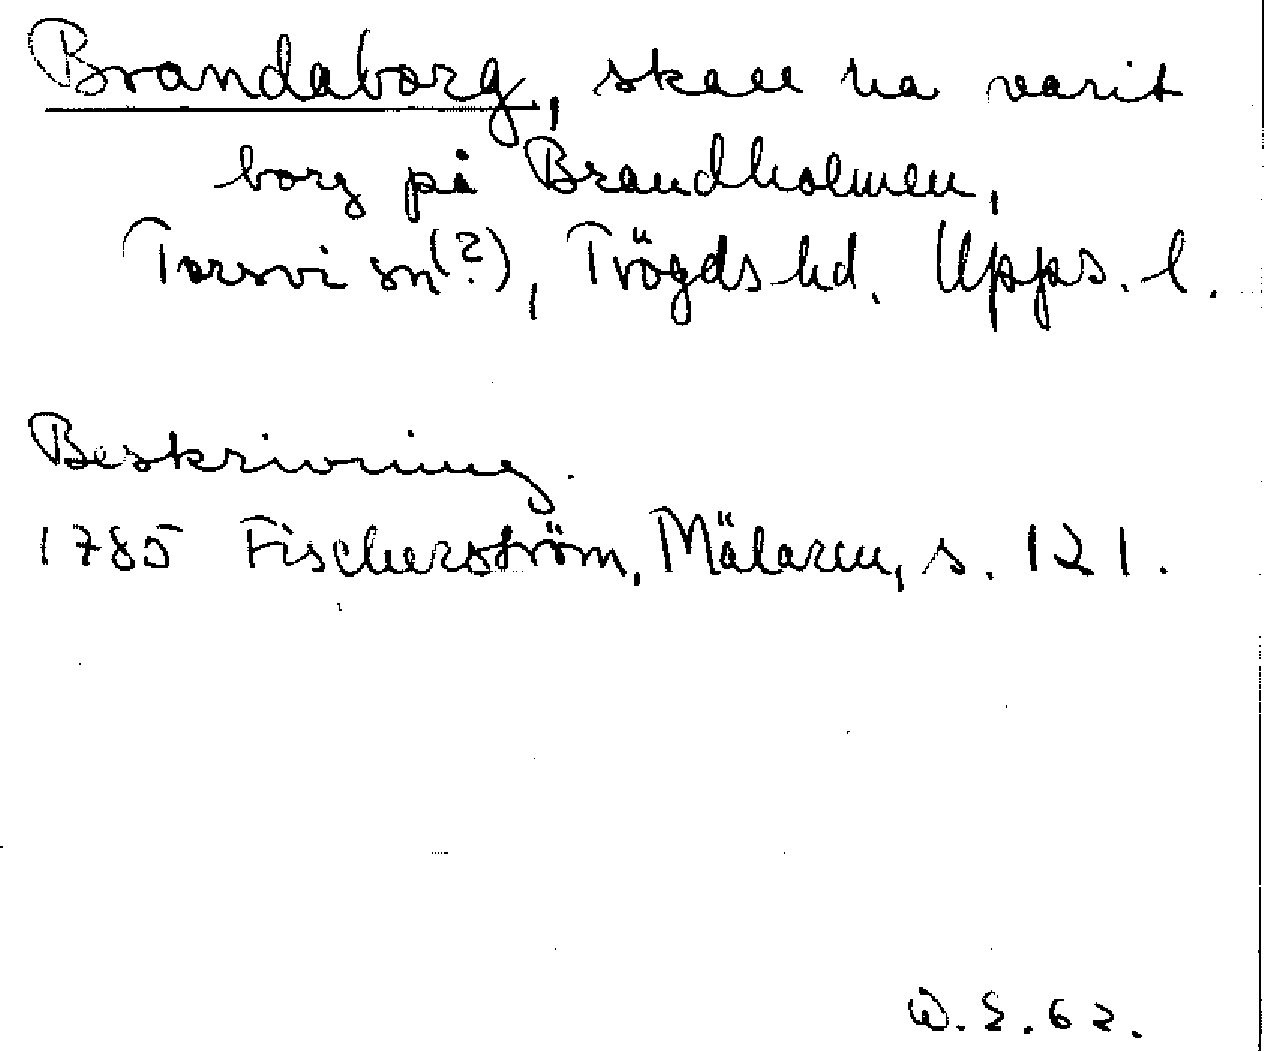 Brandaborg, skall ha varit
borg på Brandholmen,
Torsvi sn(?), Trögds hd. Upps. l.
Beskrivning.
1785 Fischerström, Mälaren, s. 121.
62.